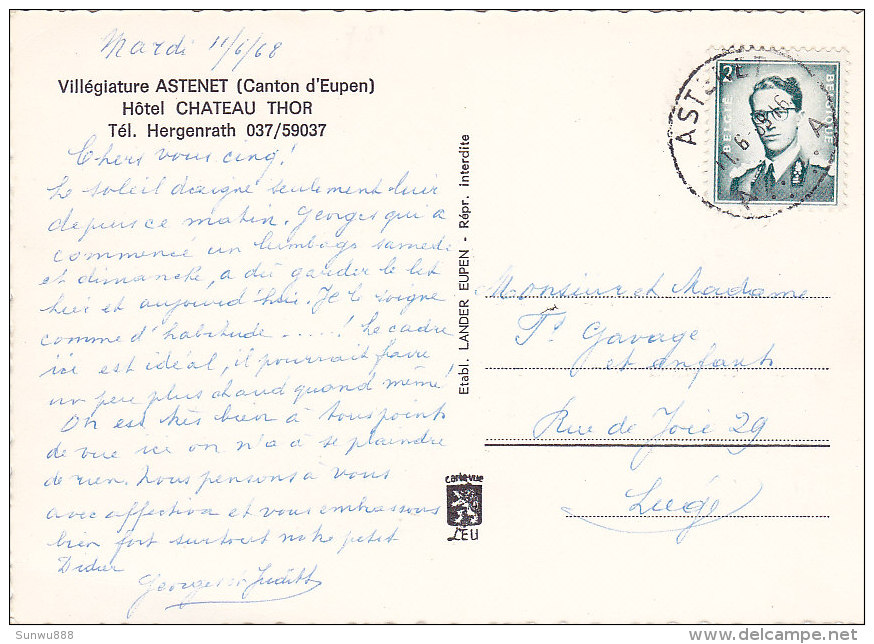 Mardi 11/6/68
Villégiature ASTENET (Canton d'Eupen)
Hôtel CHATEAU THOR
Tél. Hergenrath 037/59037
Chers vous cinq!
Le soleil daigne seulement luir
depuis ce matin. Georges qui a
commencé un lumbago samedi
et dimanche, a dû garder le lit
hier et aujourd'hui. Je le soigne
comme d'habitude .....! Le cadre
ici est idéal, il pourrait faire
un peu plus chaud quand même!
On est très bien à tous points
de vue ici on n'a à se plaindre
de rien. Nous pensons à vous
avec affection et vous embrassons
bien fort surtout notre petit
Didier
Georges et Judith
Etabl. LANDER EUPEN - Répr. interdite
carte-vue
L'EU
BELGIË
ASTENET
A A
Monsieur et Madame
Gavage
et enfants
Rue de Joie 29
Liège
Sunwu888
delcampe.net